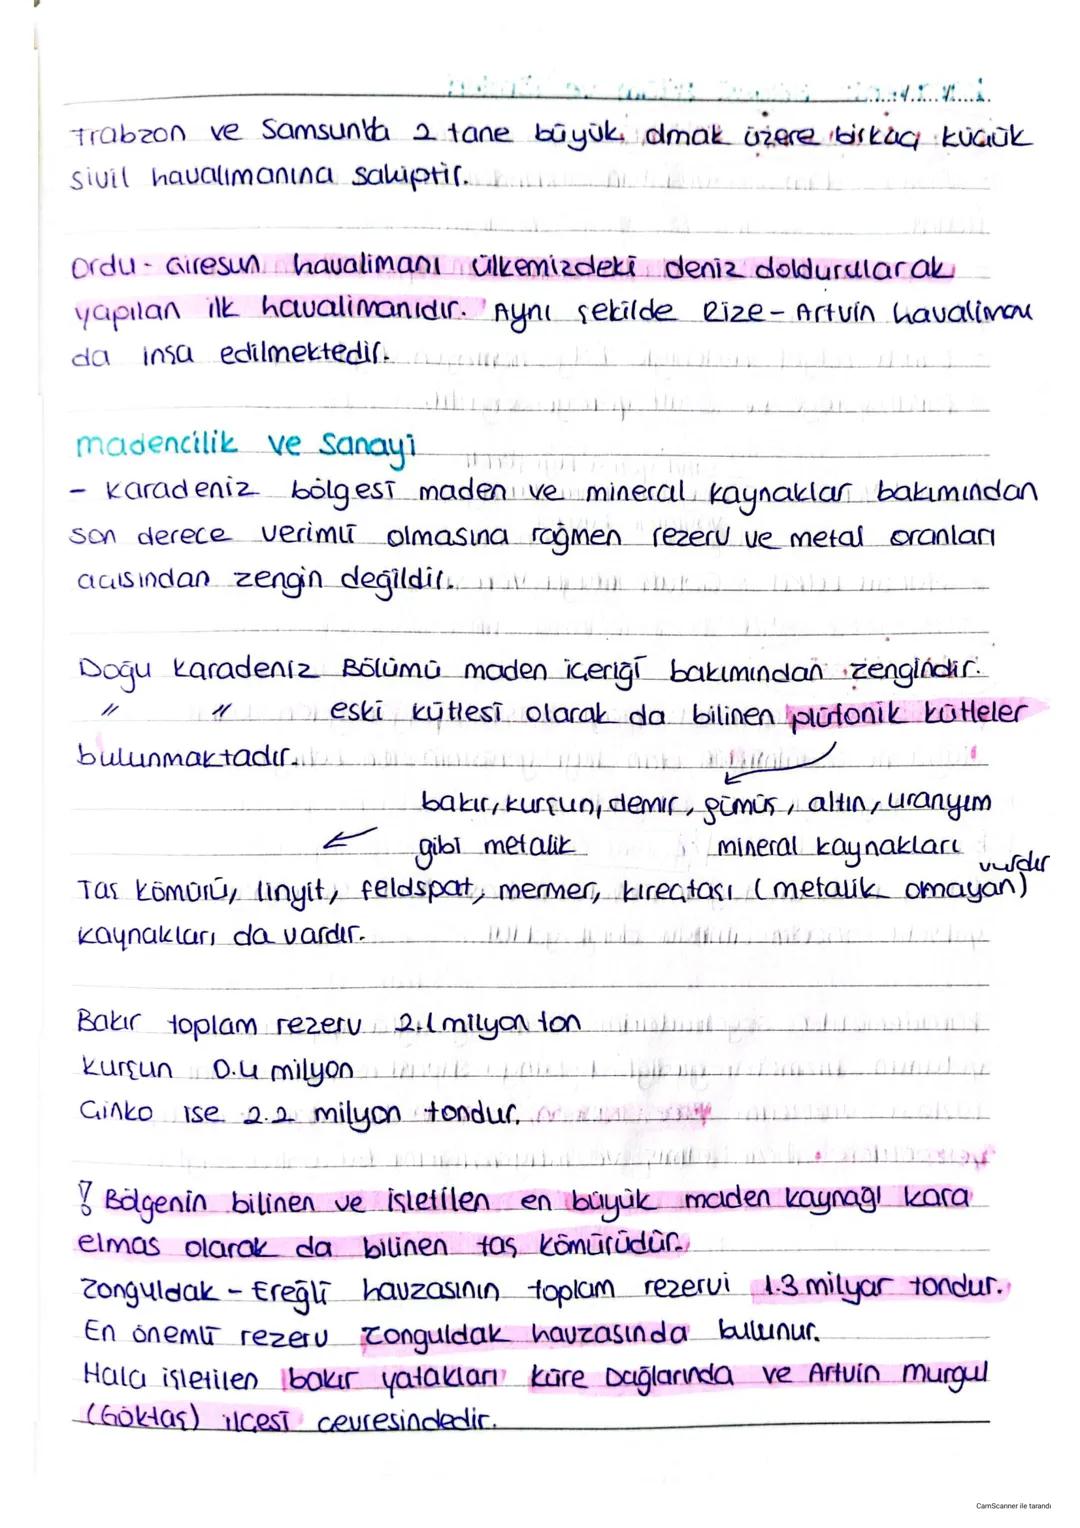 Trabzon ve Samsun'da 2 tane büyük olmak üzere birkaç küçük
sivil havalimanına sahiptir.
Ordu - Giresun havalimanı ülkemizdeki deniz doldurularak
yapılan ilk havalimanıdır. Aynı şekilde Rize - Artvin havalimanı
da inşa edilmektedir.
madencilik ve Sanayi
- Karadeniz bölgesi maden ve mineral kaynaklar bakımından
son derece verimli olmasına rağmen rezerv ve metal oranları
açısından zengin değildir.
Doğu Karadeniz Bölümü maden içeriği bakımından zengindir.
" " eski kütlesi olarak da bilinen plütonik kütleler
bulunmaktadır.
bakır, kurşun, demir, gümüş, altın, uranyum
gibi metalik mineral kaynakları vardır
Taş kömürü, linyit, feldspat, mermer, kireçtaşı (metalik omayan)
kaynakları da vardır.
Bakır toplam rezerv 2.1 milyon ton
kurşun 0.4 milyon
Çinko ise 2.2 milyon tondur.
! Bölgenin bilinen ve işletilen en büyük maden kaynağı kara
elmas olarak da bilinen taş kömürüdür.
Zonguldak - Ereğli havzasının toplam rezervi 1.3 milyar tondur.
En önemli rezerv Zonguldak havzasında bulunur.
Hala işletilen bakır yatakları Küre Dağlarında ve Artvin murgul
(Göktaş) ilçesi çevresindedir.
CamScanner ile tarandı